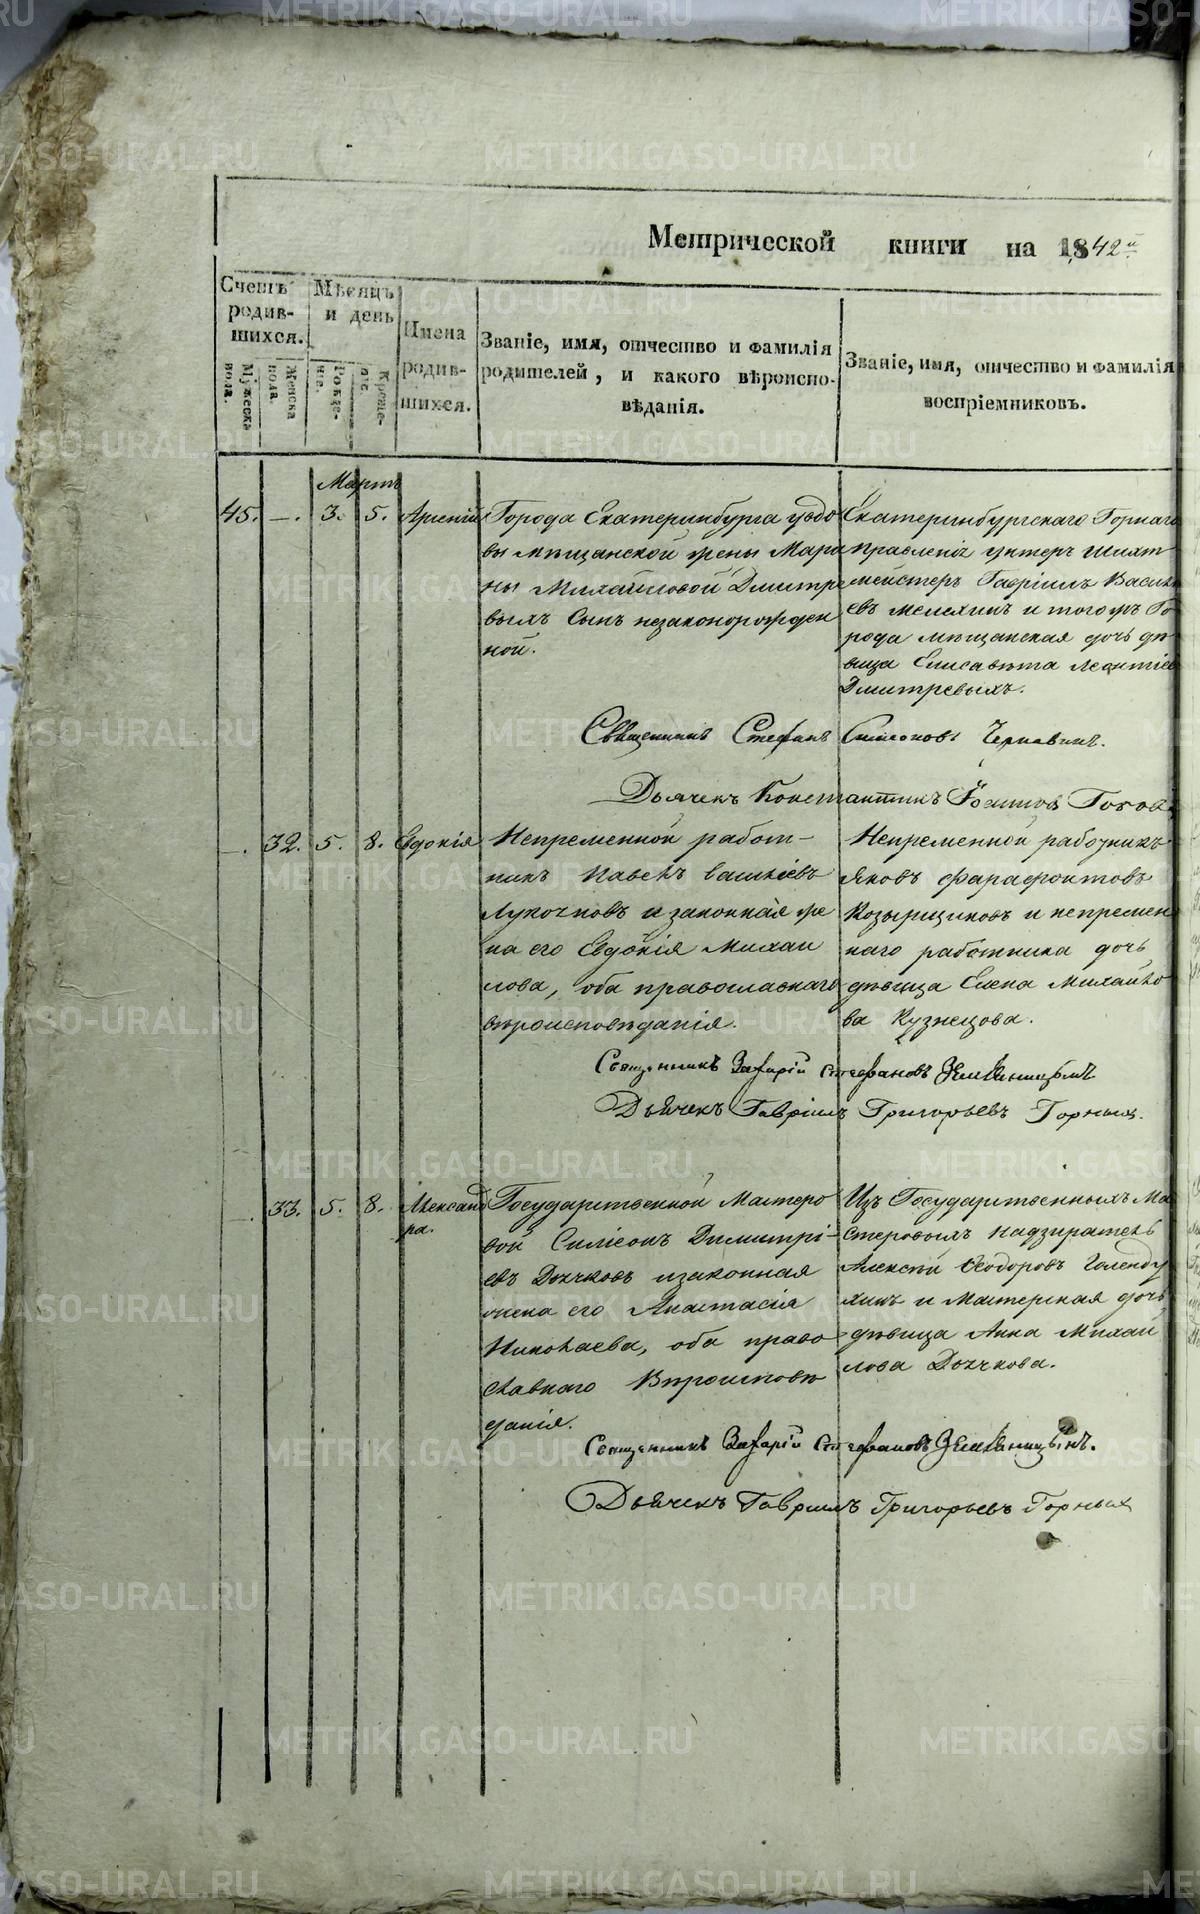 Метрической книги на 1842й.
Счетъ родив-
шихся.
Мужеска пола.
Женска пола.
Мѣсяцъ и день
Рожде-
ніе.
Креще-
ніе.
Имена
родив-
шихся.
Званіе, имя, отчество и фамилія
родителей, и какого вѣроиспо-
вѣданія.
Званіе, имя, отчество и фамилія
воспріемниковъ.
Мартъ
45. —. 3. 5. Арсеній
Города Екатеринбурга уѣдо
вы мѣщанской жены Мари
ны Михайловой Дмитре
выхъ сынъ незаконорожден
ной.
Екатеринбургскаго Горнаго
правленія унтеръ шихт
мейстеръ Гавріилъ Василь
евъ Мелехинъ и тогожъ Го
рода мѣщанская дочь дѣ
вица Елисавѣта Леонтіев
Дмитревыхъ.
Священникъ Стефанъ Симеоновъ Чернавинъ.
Дьячекъ Константинъ
—. 32. 5. 8. Евдокія
Непременной работ-
никъ Павелъ Василіевъ
Лукочковъ и законная же
на его Евдокія Михаи
лова, оба православнаго
вѣроисповѣданія.
Непременной работникъ
Яковъ Фарафонтовъ
Козырщиковъ и непремен
наго работника дочь
дѣвица Елена Михайло
ва Кузнецова.
Священникъ Захарій Стефановъ Земляницынъ
Дьячекъ Гавріилъ Григорьевъ Горныхъ.
—. 33. 5. 8. Александ
ра.
Государственной Мастеро
вой Симеонъ Димитрі-
евъ Дьячковъ изаконная
жена его Анастасія
Николаева, оба право
славнаго Вѣроисповѣ
данія.
Изъ Государственныхъ Ма
стеровыхъ Надзиратель
Алексѣй Ѳеодоровъ Голенду
хинъ и Мастерская дочь
дѣвица Анна Михаи
лова Дьячкова.
Священникъ Захарій Стефановъ Земляницынъ.
Дьячекъ Гавріилъ Григорьевъ Горныхъ
METRIKI.GASO-URAL.RU